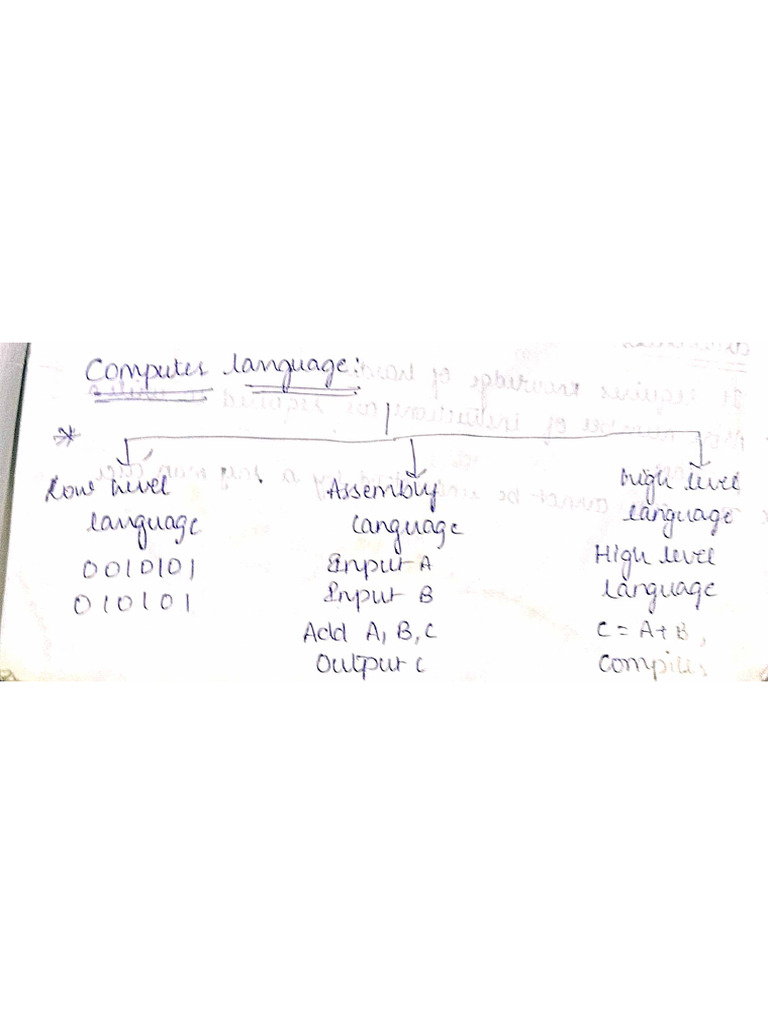 Computer language:
*
Low level
language
0010101
010101
Assembly
language
Input A
Input B
Add A, B, C
Output C
High level
language
High level
language
C = A+B,
Compiler